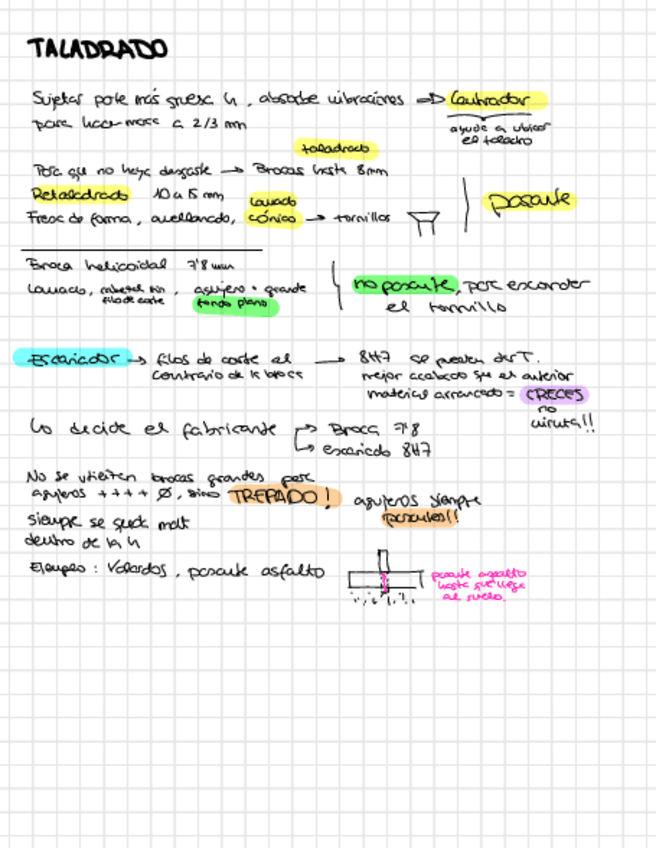 TALADRADO
Sujetar parte más gruesa h, absorbe vibraciones => Centrador
para hacer marca a 2/3 mm
ayuda a ubicar
el taladro
taladrado
Para que no haya desgaste → Brocas hasta 8mm
Retaladrado 10 a 15 mm
Fresa de forma, avellanado, lamado cónico → tornillos
pasante
Broca helicoidal 7'8 mm
Lamado, filo de corte, agujero + grande
fondo plano
no pasante, para esconder
el tornillo
Escariador → filos de corte al → 8H7 se pueden dar T.
contrario de la broca
mejor acabado que el anterior
material arrancado = CRECES
no
viruta!!
Lo decide el fabricante → Broca 7'8
→ escariado 8H7
No se utilizan brocas grandes para
agujeros ++++ Ø, sino TREPADO! agujeros siempre
pasantes!!
siempre se queda mat
dentro de la h
Ejemplo: Volardos, pasante asfalto
pasante asfalto
hasta que llega
al suelo.